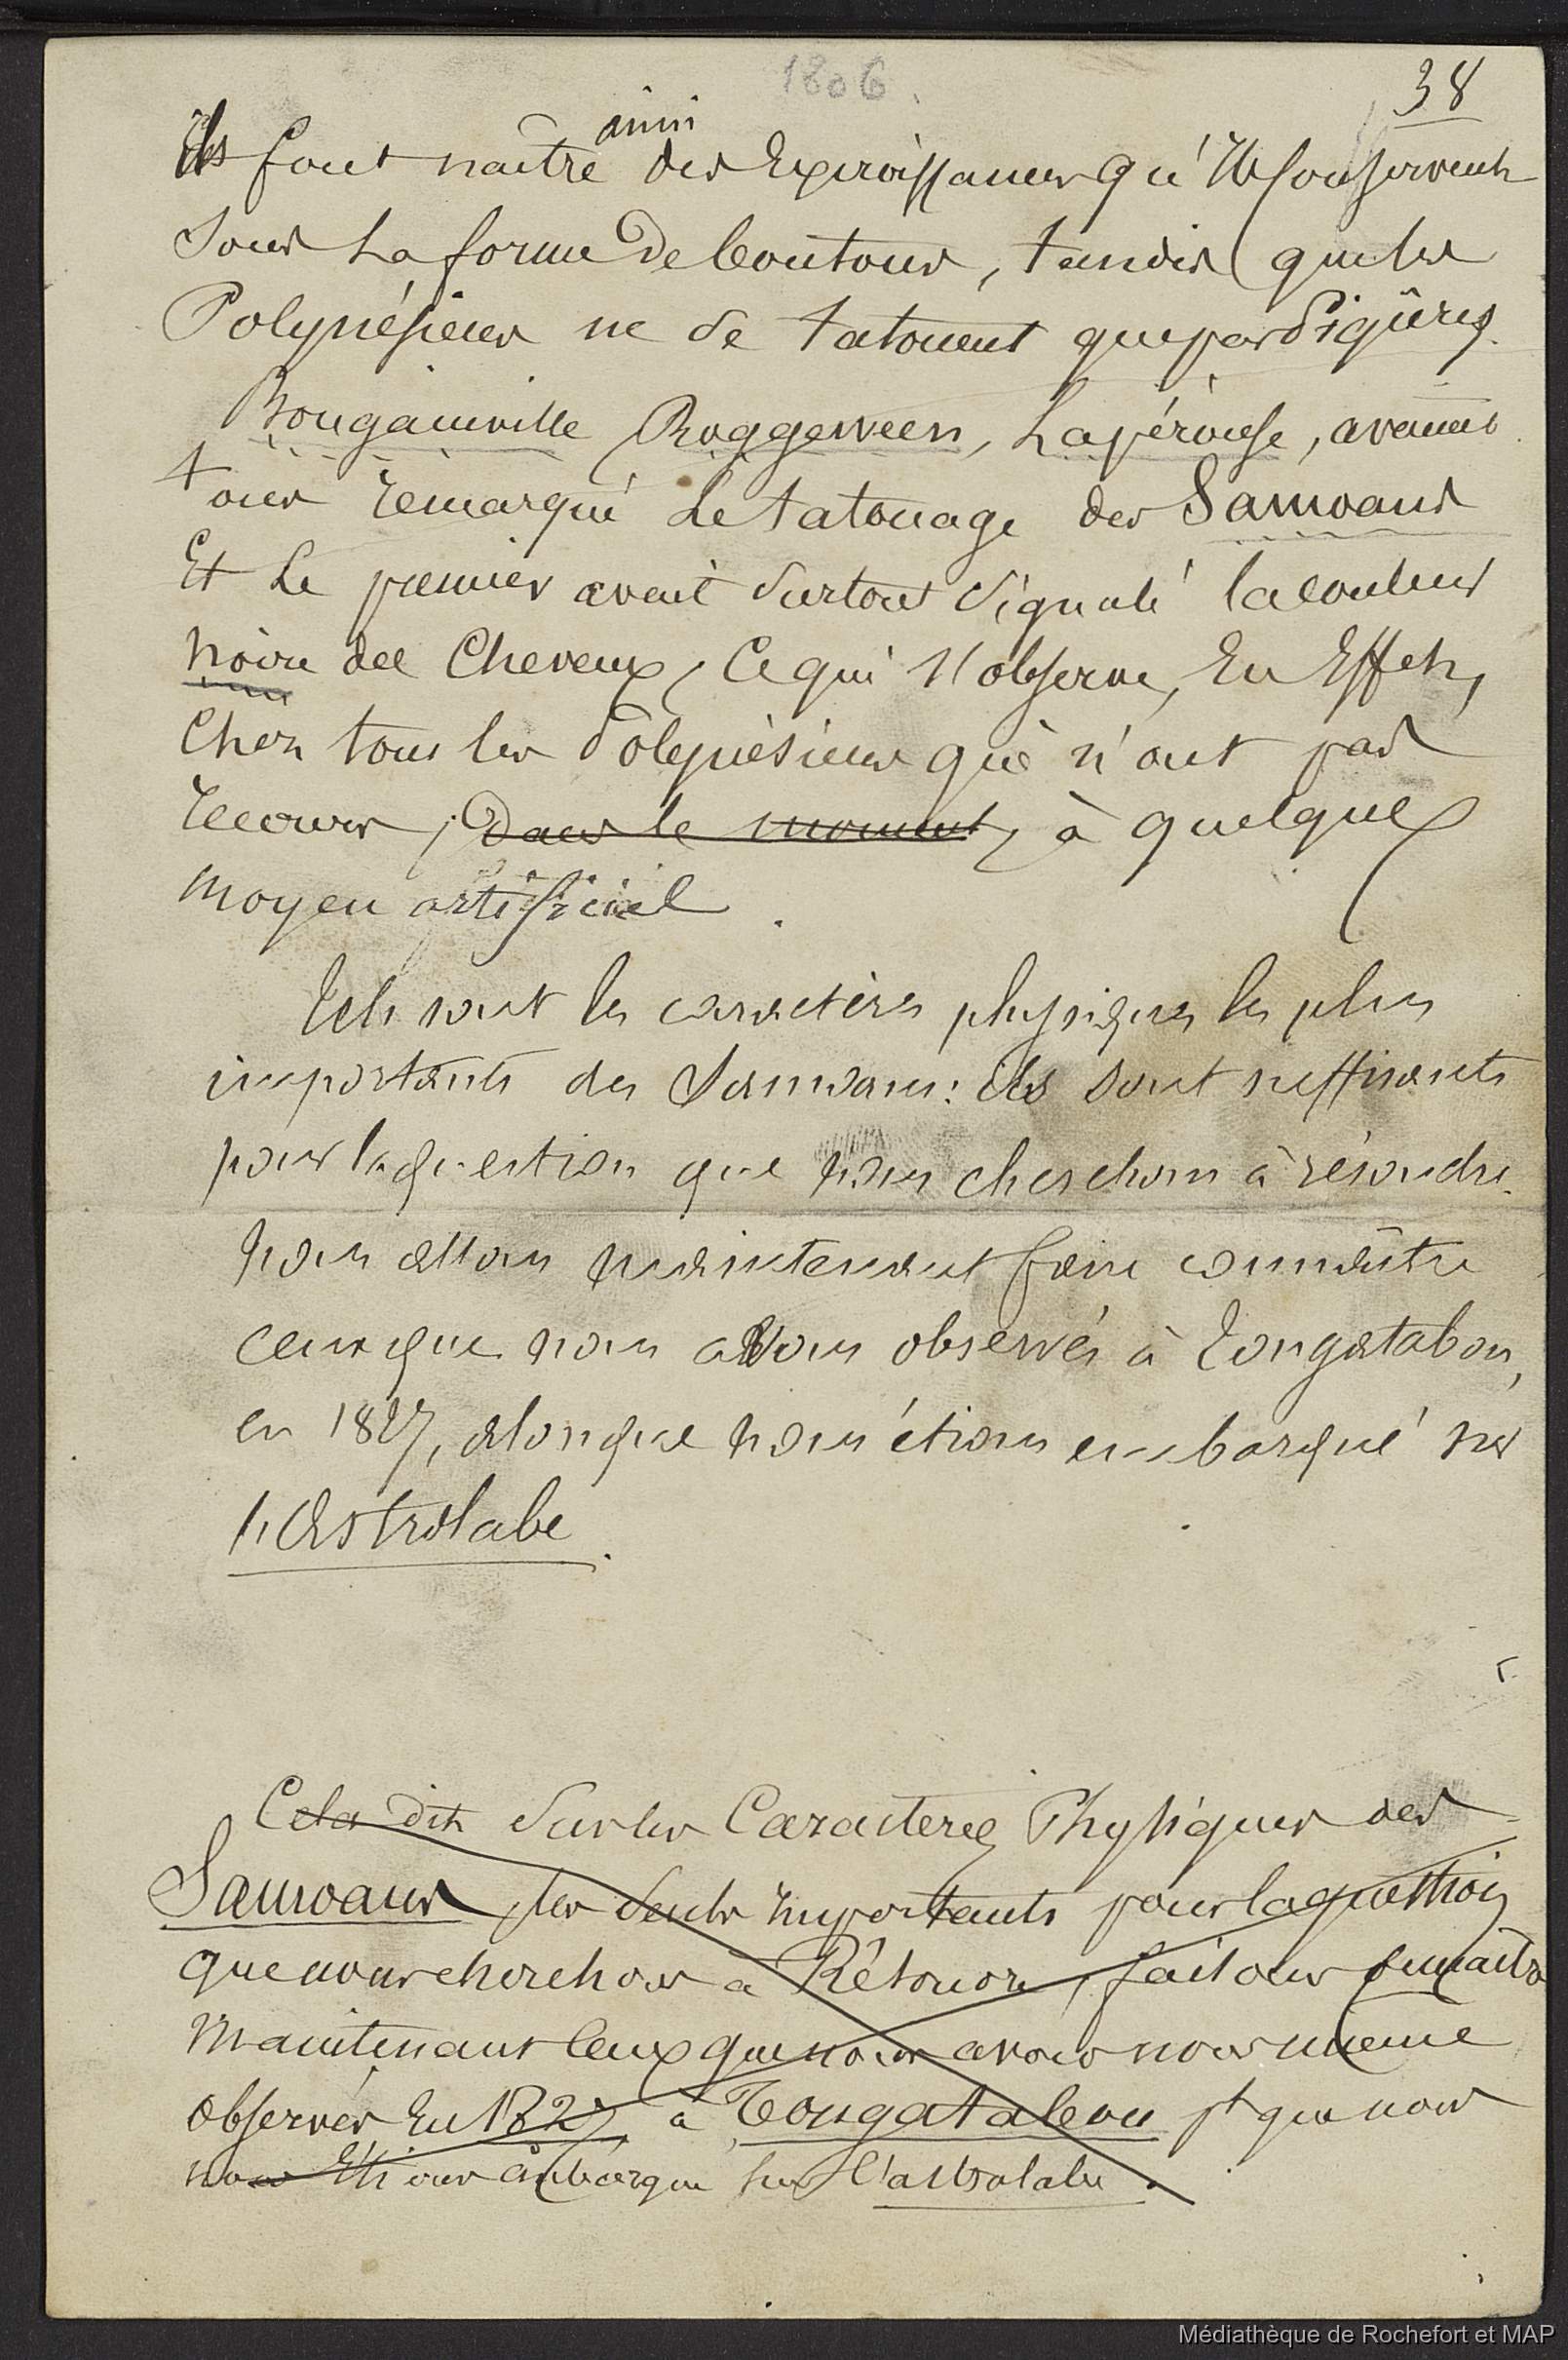 1806.
38
ainsi
Ils font naître des Excroissances qu'Ils conservent
Sous La forme De boutons, tandis que les
Polynésiens ne se tatouent que par Piqûres.
Bougainville Roggeween, Lapérouse, avaient
tous remarqué Le tatouage des Samoans
Et Le premier avait surtout signalé la couleur
noire des Cheveux, Ce qui s'observe, En Effet,
Chez tous les Polynésiens qui n'ont pas
recours, dans le moment, à quelque
moyen artificiel.
Tels sont les caractères physiques les plus
importants des Samoans: ils sont suffisants
pour la question que nous cherchons à résoudre.
nous allons maintenant faire connaître
ceux que nous avons observés à Tongatabou,
en 1827, alors que nous étions embarqué sur
l'Astrolabe.
Cela dit sur les Caracteres Physiques des
Samoans, les seuls importants pour la question
que nous cherchons à Résoudre, faisons connaître
maintenant Ceux que nous avons nous même
observés En 1827, à Tongatabou pt que nous
nous Etions embarqué sur l'astrolabe.
Médiathèque de Rochefort et MAP